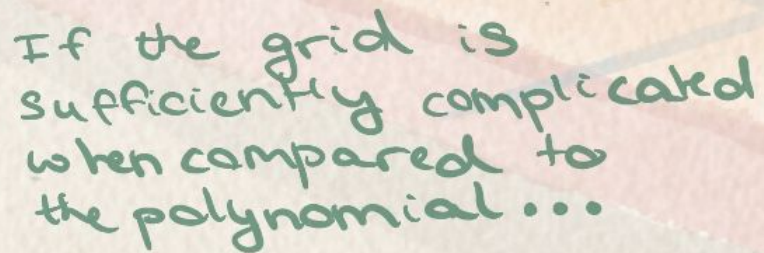 If the grid is
sufficiently complicated
when compared to
the polynomial...